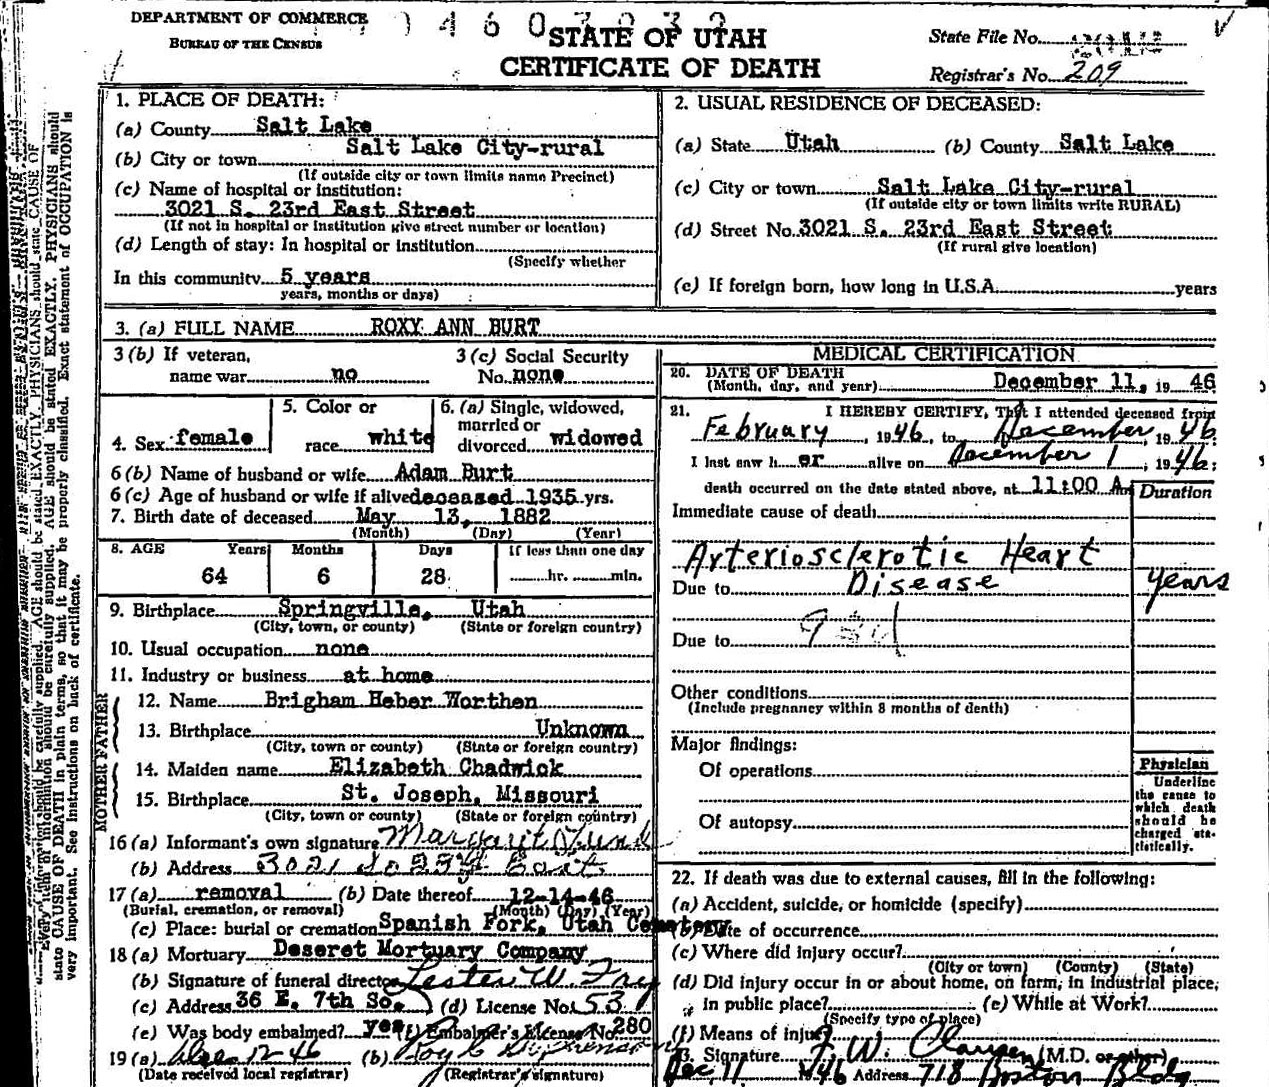 DEPARTMENT OF COMMERCE
BUREAU OF THE CENSUS
STATE OF UTAH
CERTIFICATE OF DEATH
State File No.
Registrar's No. 209
1. PLACE OF DEATH:
(a) County Salt Lake
(b) City or town Salt Lake City-rural
(If outside city or town limits name Precinct)
(c) Name of hospital or institution:
3021 S. 23rd East Street
(If not in hospital or institution give street number or location)
(d) Length of stay: In hospital or institution
(Specify whether
In this community 5 years
years, months or days)
2. USUAL RESIDENCE OF DECEASED:
(a) State Utah (b) County Salt Lake
(c) City or town Salt Lake City-rural
(If outside city or town limits write RURAL)
(d) Street No. 3021 S. 23rd East Street
(If rural give location)
(e) If foreign born, how long in U.S.A. years
3. (a) FULL NAME ROXY ANN BURT
3 (b) If veteran, name war no
3 (c) Social Security No. none
4. Sex female
5. Color or race white
6. (a) Single, widowed, married or divorced widowed
6 (b) Name of husband or wife Adam Burt
6 (c) Age of husband or wife if alive deceased 1935 yrs.
7. Birth date of deceased May 13, 1882
(Month) (Day) (Year)
8. AGE Years Months Days If less than one day
64 6 28 hr. min.
9. Birthplace Springville, Utah
(City, town, or county) (State or foreign country)
10. Usual occupation none
11. Industry or business at home
FATHER
12. Name Brigham Heber Worthen
13. Birthplace Unknown
(City, town or county) (State or foreign country)
MOTHER
14. Maiden name Elizabeth Chadwick
15. Birthplace St. Joseph, Missouri
(City, town or county) (State or foreign country)
16 (a) Informant's own signature
(b) Address 3021 So 23rd East
17 (a) removal (b) Date thereof 12-14-46
(Burial, cremation, or removal) (Month) (Day) (Year)
(c) Place: burial or cremation Spanish Fork, Utah Cemetery
18 (a) Mortuary Deseret Mortuary Company
(b) Signature of funeral director Lester W. Fry
(c) Address 36 E. 7th So. (d) License No. 531
(e) Was body embalmed? yes (f) Embalmer's License No. 280
19 (a) Dec 12-46 (b)
(Date received local registrar) (Registrar's signature)
MEDICAL CERTIFICATION
20. DATE OF DEATH
(Month, day, and year) December 11, 19 46
21. I HEREBY CERTIFY, That I attended deceased from
February, 1946, to December, 1946
I last saw h er alive on December 1, 1946;
death occurred on the date stated above, at 11:00 A m
Duration
Immediate cause of death
Arteriosclerotic Heart
Due to Disease years
Due to
Other conditions
(Include pregnancy within 3 months of death)
Major findings:
Of operations
Of autopsy
Physician
Underline
the cause to
which death
should be
charged sta-
tistically.
22. If death was due to external causes, fill in the following:
(a) Accident, suicide, or homicide (specify)
(b) Date of occurrence
(c) Where did injury occur?
(City or town) (County) (State)
(d) Did injury occur in or about home, on farm, in industrial place,
in public place? (e) While at Work?
(Specify type of place)
(f) Means of injury
23. Signature F. W. Clausen (M.D. or other)
Dec 11 1946 Address 718 Boston Bldg